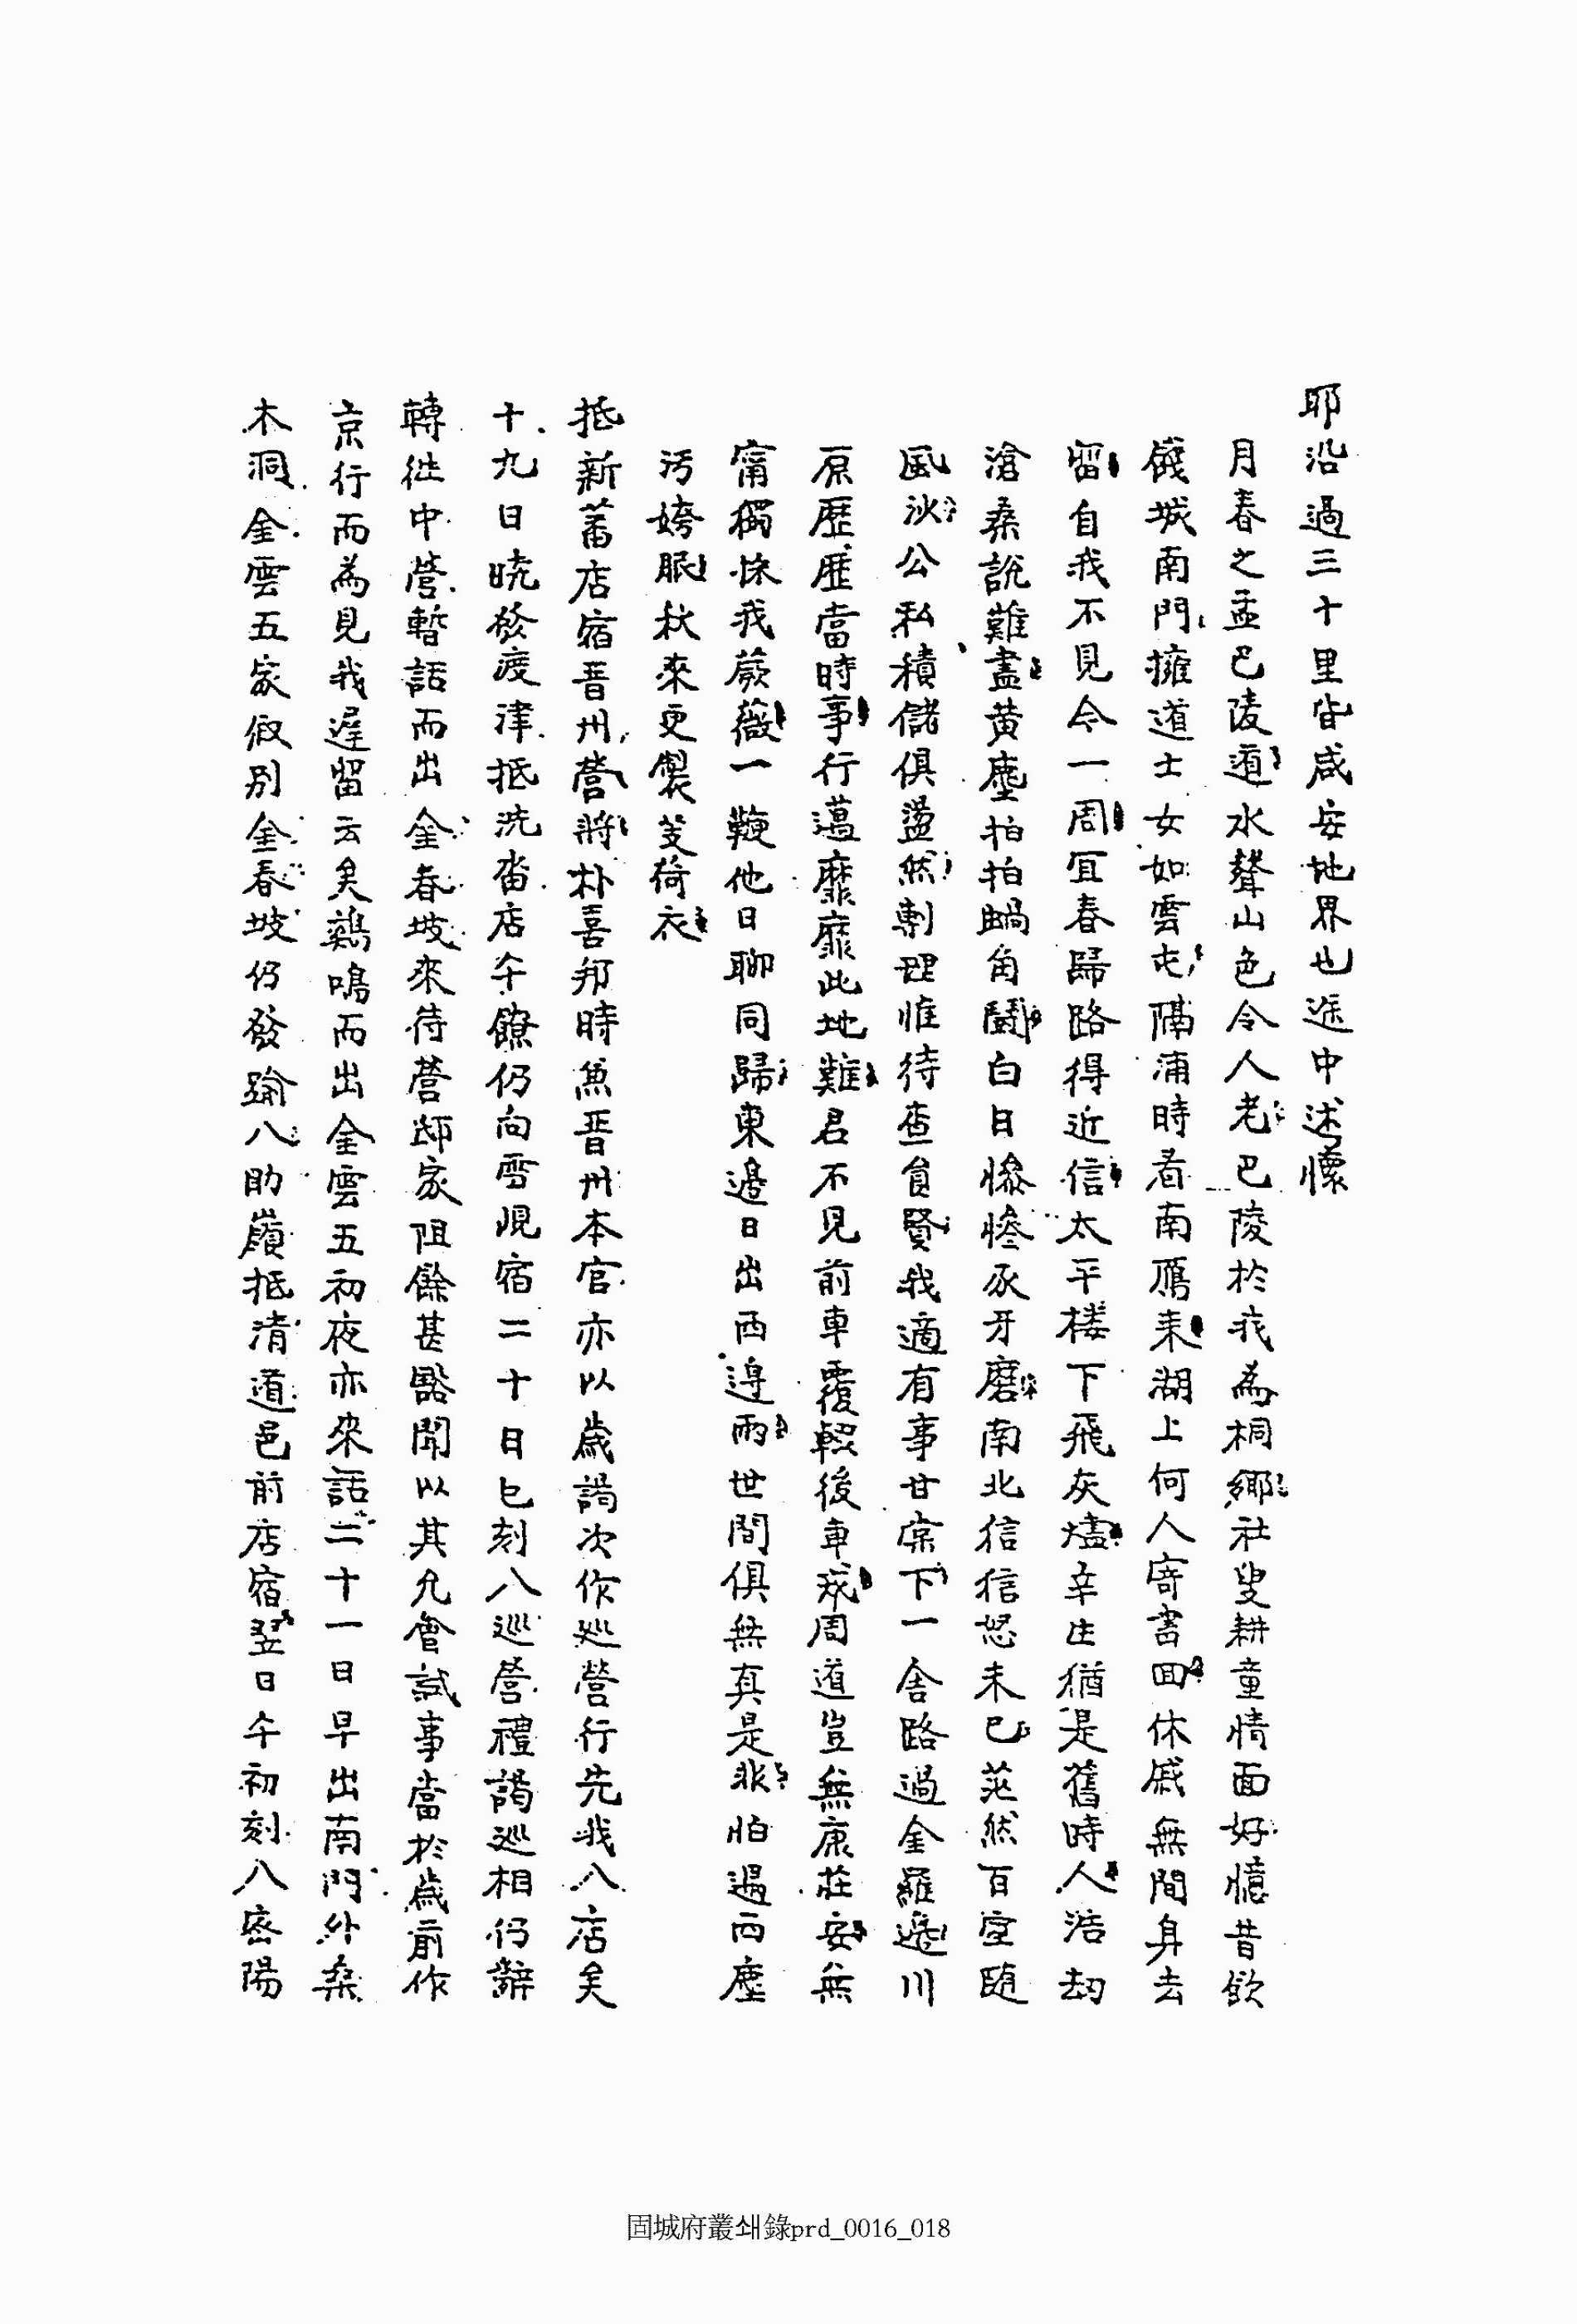 耶沿過三十里皆咸安地界也途中述懷
月春之孟巴陵道水聲山色令人老巴陵於我為桐鄉社叟耕童情面好憶昔欲
餞城南門擁道士女如雲屯隔浦時看南鴈来湖上何人寄書回休戚無間身去
留自我不見今一周冝春歸路得近信太平樓下飛灰燼辛生猶是舊時人浩劫
滄桑說難盡黃塵拍拍蝸角鬪白日慘慘豕牙磨南北信信怒未已茫然百室随
風沙公私積儲俱盪然剸理惟待查負賢我適有事甘棠下一舍路過金羅遞川
原歷歷當時事行邁靡靡此地難君不見前車覆轍後車戒周道豈無康莊安無
甯獨採我蕨薇一鞭他日聊同歸東邊日出西邊雨世間俱無真是非怕遇西塵
汚姱服秋來更製芰荷衣
抵新蕃店宿晋州營將朴喜邦時兼晋州本官亦以歲謁次作巡營行先我入店矣
十九日曉發渡津抵洗畓店午饒仍向雪峴宿二十日巳刻入巡營禮謁巡相仍辭
轉徃中營暫話而出金春坡來待營邸家阻餘甚豁聞以其允會試事當於歲前作
京行而為見我遲留云矣鷄鳴而出金雲五初夜亦來話二十一日早出南門外桒
木洞金雲五家叙別金春坡仍發踰八助嶺抵清道邑前店宿翌日午初刻入密陽
固城府叢쇄錄prd_0016_018